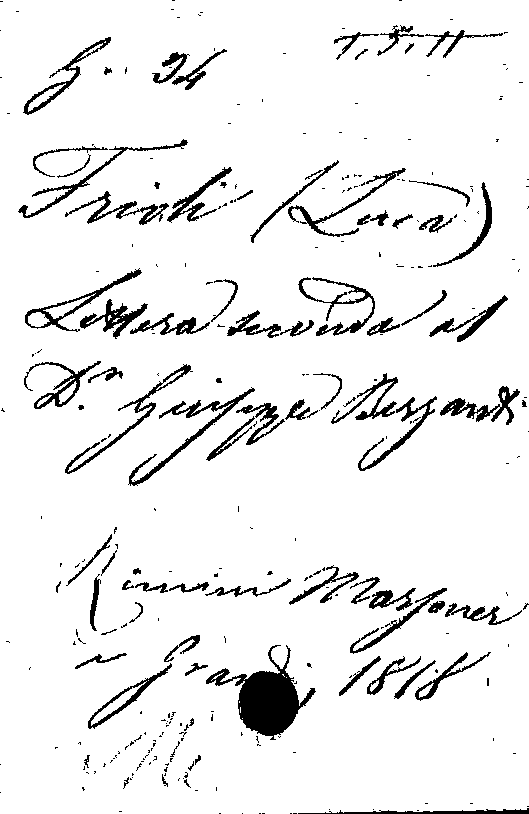 G. 34
T, 5, 11
Frioli (Luca)
Lettera seconda al
D.r Giuseppe Berganti
Rimini Marsoner
e Grandi, 1818